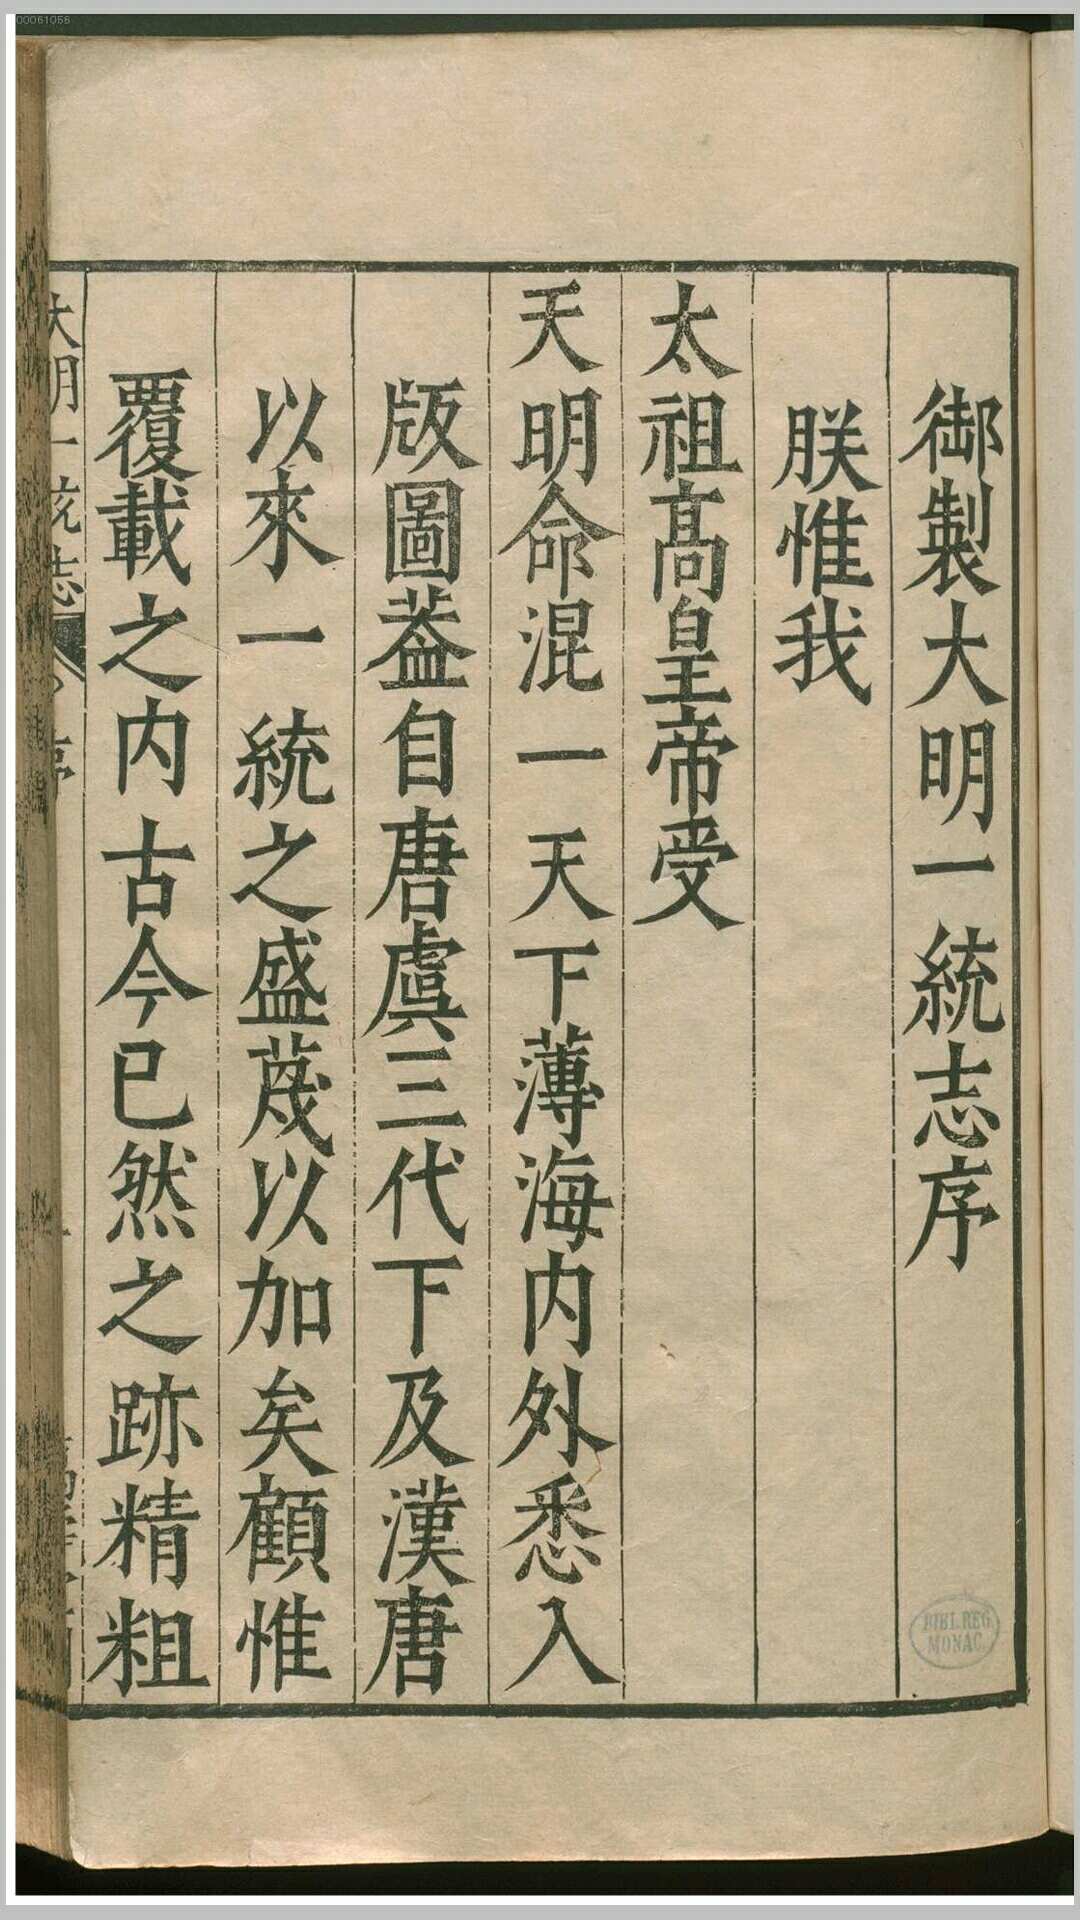 00061056
御製大明一統志序
朕惟我
太祖高皇帝受
天明命混一天下薄海內外悉入
版圖葢自唐虞三代下及漢唐
以來一統之盛蔑以加矣顧惟
覆載之內古今已然之跡精粗
大明一統志
序
BIBL. REG.
MONAC.